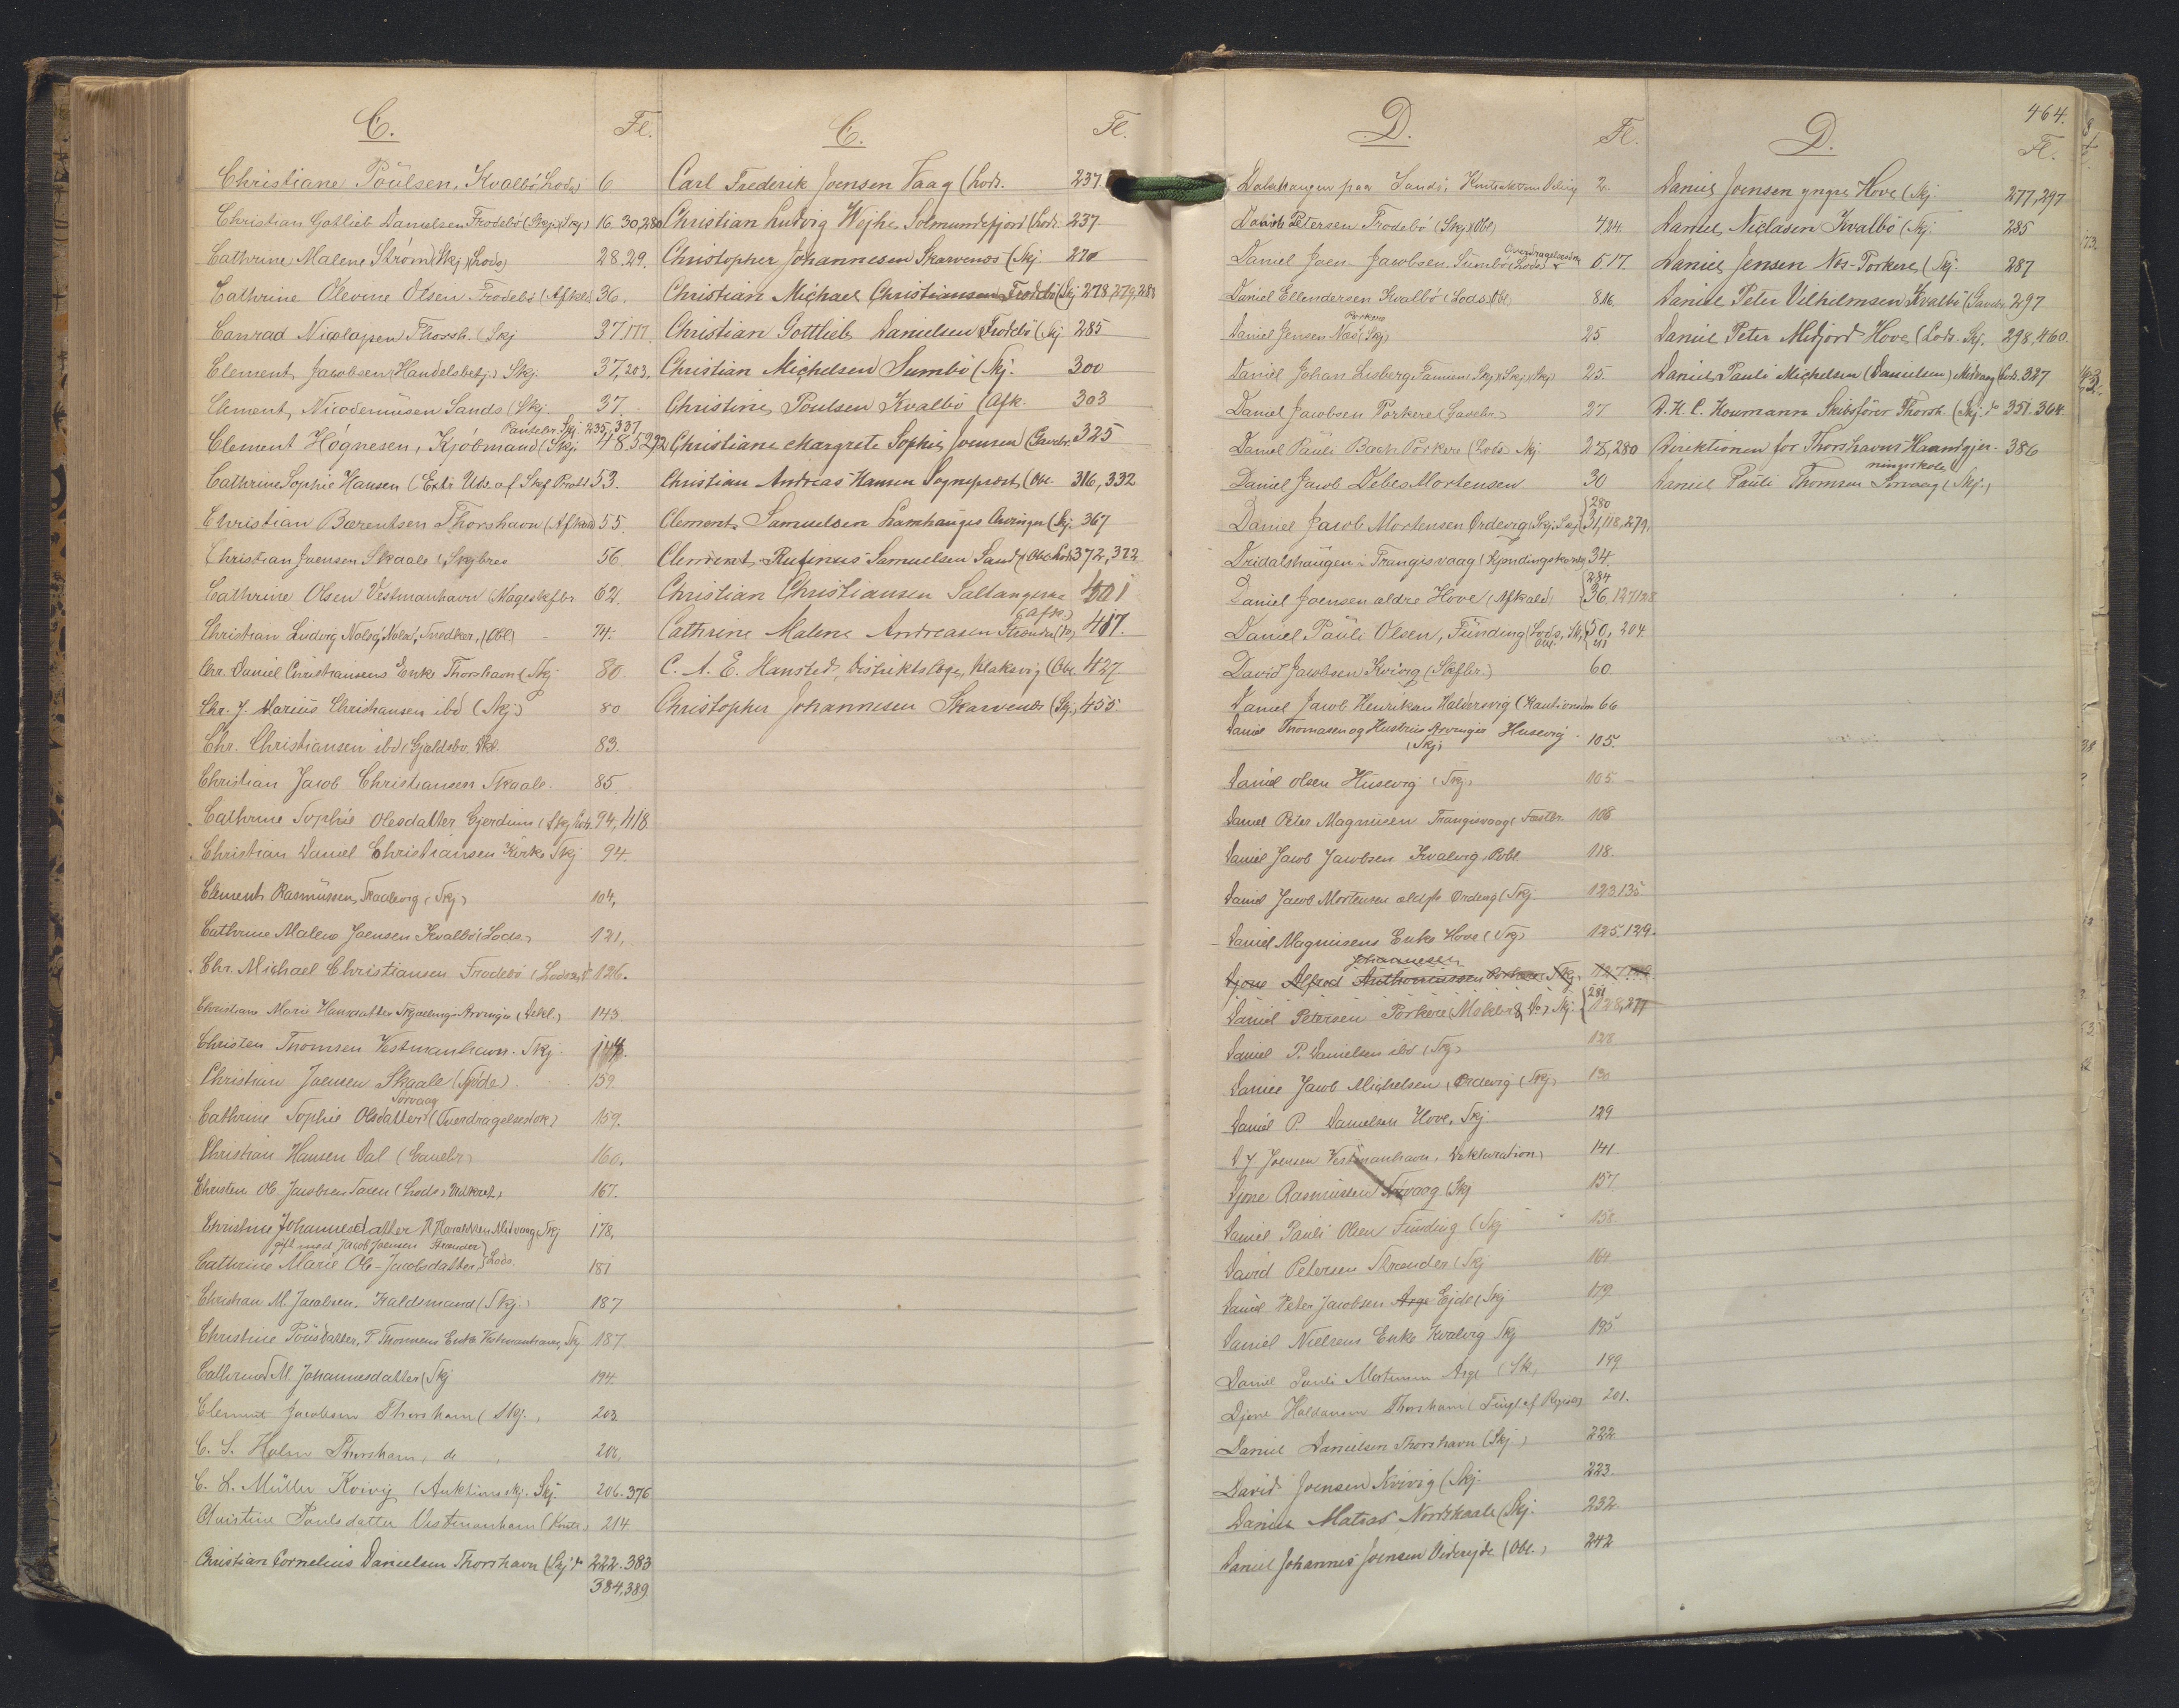 C. Fl.
Christiane Poülsen, Kvalbö (Lods) 6
Christian Gotlieb Danielsen Frodebö (Skj.)(Skj.) 16.30,280
Cathrine Malene Strøm (Skj)(Lods) 28.29.
Cathrine Olevine Olsen Frodebö (Afkld) 36.
Conrad Nicolajsen Thorsh. (Skj 37.177.
Clement Jacobsen (Handelsbetj.) Skj. 37,203.
Clement Nicodemüsen Sands (Skj. 37.
Pantebr. Skj 235,337
Clement Högnesen, Kjöbmand (Skj. 48.52,92
Cathrine Sophie Hansen (Extr. Uds. af Skf Prot 53.
Christian Bærentsen Thorshavn (Afkald 55.
Christian Joensen Skaale (Skjbrev 56.
Cathrine Olsen Vestmanhavn (Mageskfbr. 62.
Christian Ludvig Nolsö, Nolsö, Snedker, (Obl) 74.
Chr. Daniel Christiansens Enke Thorshavn (Skj 80.
Chr. J. Marius Christiansen ibd (Skj.) 80
Chr. Christiansen ibd (Gjældsbr. Skd. 83.
Christian Jacob Christiansen Skaale. 85.
Cathrine Sophie Olesdatter Gjerdum (Skj 94,418
Christian Daniel Christiansen Kirke Skj 94.
Clement Rasmüssen, Skaalevig (Skj) 104,
Cathrine Malene Joensen Kvalbö (Lods.) 121,
Chr. Michael Christiansen Frodebö (Lods 126.
Christiane Marie Hansdatter Arvinger (Dekl.) 143.
Christen Thomsen Vestmanhavn. Skj. 144.
Christian Joensen Skaale (Skjøde). 159.
Sørvaag
Cathrine Sophie Olsdatter (Overdragelsesdok) 159.
Christian Hansen Dal (Gavebr) 160.
Christen Ol. Jacobsen (Lods. Udskrt.) 167.
Christine Johannesdatter H Haraldsen Midvaag, Skj 178.
gift med Jacob Joensen Strænder
Cathrine Marie Ole-Jacobsdatter, Lods. 181
Christian M. Jacobsen, Kaldsmand (Skj.) 187
Christine Poüsdatter, P. Thomsens Enke Vestmanhavn, Skj 187.
Cathrine M. Johannesdatter (Skj 194.
Clement Jacobsen Thorshavn (Skj., 203
C. S. Holm Thorshavn, do 206.
C. L. Müller Kvivig (Auktions skj. Skj. 206.376
Christine Poulsdatter Vestmanhavn (Kontr.) 214
Christian Cornelius Danielsen Thorshavn (Skj do 222.383
384,389.
C. Fl.
Carl Frederik Joensen Vaag (Lods. 237
Christian Ludvig Wejhe Solmundefjord (Lods. 237.
Christopher Johannesen Skarvenæs (Skj. 270
Christian Michael Christiansen Frodebö (Skj 278,279,288
Christian Gottlieb Danielsen Frodebö (Skj 285
Christian Michelsen Sumbö (Skj. 300
Christine Poulsen Kvalbö (Afk. 303
Christiane Margrete Sophie Joensen (Gavebr. 325
Christian Andreas Hansen Sogneprest (Obl. 316, 332
Clement Samuelsen Lamhauges Arvinger (Skj. 367
Clement Rufinus Samuelsen Sand (Obl. Lods 372, 372
Christian Christiansen Saltangerne 401
(Afk.)
Cathrine Malene Andreasen Strender 417.
C. A. E. Hansted, Distriktslæge, Klaksvig (Obl. 427.
Christopher Johannesen Skarvenæs (Skj., 455.
D. Fl.
Dalshaugen paa Sandö, 2.
David Petersen Frodebö (Skj)(Obl) 4,24.
Overdragelsesdok
Daniel Joen Jacobsen. Sumbö (Lods) & 6.17.
Daniel Ellendersen Kvalbö (Lods, Obl) 8.16.
Porkere
Daniel Jensen Næs (Skj) 25.
Daniel Johan Lisberg Famien (Skj)(Skj)(Skj) 25.
Daniel Jacobsen Porkere (Gavebr.) 27
Daniel Paüli Bech Porkere (Lods. Skj. 28,280
Daniel Jacob Debes Mortensen 30
280
Daniel Jacob Mortensen Ordevig (Skj. Skj 31,118,279.
Dridalshaugen i Trangisvaag (Kjendingskontr. 34.
284
Daniel Joensen ældre Hove (Afkald) 36,127.128.
Daniel Paüli Olsen, Fünding (Lods, Sk, 50, 204.
Obl. 211
David Jacobsen Kvivig (Skftbr.) 60.
Daniel Jacob Henriksen Haldersvig (Kautionsdom 66
Daniel Thomasen og Hustrus Arvinger Husevig
(Skj) 105.
Daniel Olsen Husevig (Skj) 105.
Daniel Peter Magnusen Trangisvaag (Fæstbr. 108
Daniel Jacob Jacobsen Kvalvig, Pobl. 118.
Daniel Jacob Mortensen ældste Ordevig (Skj. 123.135
Daniel Magnusens Enke Hove (Skj) 125.129.
Johannesen
Djone Alfred Anthoniussen Porkere Skj. 127.
281
Daniel Petersen Porkere (Makebr. & Do) Skj. 128,277
Daniel P. Danielsen ibd (Skj) 128
Daniel Jacob Michelsen, Ordevig (Skj) 130
Daniel P. Danielsen Hove, Skj. 129
D J Joensen Vestmanhavn, Deklaration) 141.
Djone Rasmüssen Sørvaag (Skj 157.
Daniel Pauli Olsen Funding (Skj 158
David Petersen Strænder (Skj 164.
Daniel Peter Jacobsen Arge Ejde (Skj 179.
Daniel Nielsens Enke Kvalvig Skj 195
Daniel Pauli Mortensen Arge (Sk, 199
Djone Haldansen Thorshavn 201.
Daniel Danielsen Thorshavn (Skj.) 222
David Joensen Kvivig (Skj. 223.
Daniel Matras Nordskaale (Skj. 232
Daniel Johannes Joensen Viderejde (Obl., 242
464.
D. Fl.
Daniel Joensen yngre Hove (Skj. 277,297
Daniel Niclasen Kvalbö (Skj. 285
Daniel Jensen Nes-Porkere (Skj. 287
Daniel Peter Vilhelmsen Kvalbö (Gavebr. 297
Daniel Peter Midjord Hove (Lods. Skj. 298,460.
Daniel Pauli Michelsen (Danielsen) Midvaag (Lods. 327
D. H. C. Koumann Skibsfører Thorsh. (Skj. do 351.364.
Direktionen for Thorshavns Haandgjer- 386
ningsskole
Daniel Pauli Thomsen Sørvaag (Skj.)